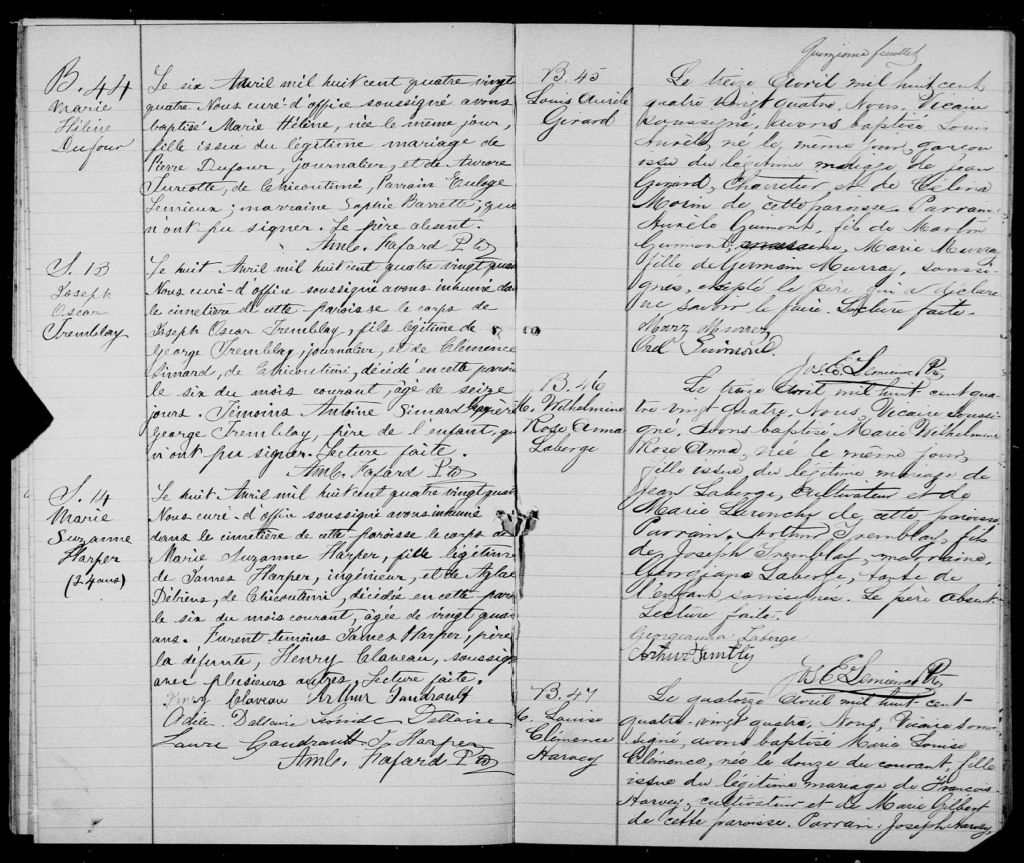 B. 44
Marie
Hélène
Dufour
Le six Avril mil huit cent quatre vingt
quatre Nous curé-d'office soussigné avons
baptisé Marie Hélène, née le même jour,
fille issue du légitime mariage de
Pierre Dufour, journalier, et de Aurore
Turcotte, de Chicoutimi, Parrain Euloge
Lemieux; marraine Sophie Barrette; qui
n'ont pu signer. Le père absent.
Amb. Fafard Ptre
S. 13
Joseph
Oscar
Tremblay
Le huit Avril mil huit cent quatre vingt quat
Nous curé-d'office soussigné avons inhumé dan
le cimetière de cette paroisse le corps de
Joseph Oscar Tremblay, fils légitime de
George Tremblay, journalier, et de Clémence
Simard, de Chicoutimi, décédé en cette parois
le six du mois courant, âgé de seize
jours. Témoins Antoine Simard
George Tremblay, père de l'enfant, qui
n'ont pu signer. Lecture faite.
Amb. Fafard Ptre
S. 14
Marie
Suzanne
Harper
(24 ans)
Le huit Avril mil huit cent quatre vingt quat
Nous curé-d'office soussigné avons inhumé
dans le cimetière de cette paroisse le corps de
Marie Suzanne Harper, fille légitime
de James Harper, ingénieur, et de Aglaé
Débiens, de Chicoutimi, décédée en cette paro
le six du mois courant, âgée de vingt quat
ans. Furent témoins James Harper, père
la défunte, Henry Claveau, soussign
avec plusieurs autres. Lecture faite.
Henry Claveau Arthur Gaudrault
Adèle Dallaire Léonide Dallaire
Laure Gaudrault J. Harper
Amb. Fafard Ptre
Quinzième feuillet
B. 45
Louis Aurèle
Gérard
Le treize Avril mil huit cent
quatre vingt quatre, Nous, Vicaire
soussigné, avons baptisé Louis
Aurèle, né le même jour, garçon
issu du légitime mariage de Jean
Gérard, Charretier, et de Célina
Morin de cette paroisse. Parrain
Aurèle Guimont, fils de Martin
Guimont, Marie Murray
fille de Germain Murray, soussi-
gnés, excepté le père qui a déclaré
ne savoir le faire. Lecture faite.
Mary Murray
Orel Guimond.
Jos. E. Lemieux Ptre
B. 46
M. Wilhelmine
Rose Anna
Laberge
Le treize Avril mil huit cent qua-
tre vingt quatre, Nous, Vicaire soussi-
gné, avons baptisé Marie Wilhelmine
Rose Anna, née le même jour,
fille issue du légitime mariage de
Jean Laberge, cultivateur et de
Marie Larouche de cette paroisse,
Parrain, Arthur Tremblay, fils
de Joseph Tremblay, marraine,
Georgiana Laberge, tante de
l'enfant soussignés. Le père absent.
Lecture faite.
Georgianna Laberge
Arthur Trembly
Jos. E. Lemieux Ptre
B. 47
M. Louise
Clémence
Harvey
Le quatorze Avril mil huit cent
quatre-vingt quatre, Nous, Vicaire sous-
signé, avons baptisé Marie Louise
Clémence, née le douze du courant, fille
issue du légitime mariage de François
Harvey, cultivateur et de Marie Gilbert
de cette paroisse. Parrain, Joseph Harvey,